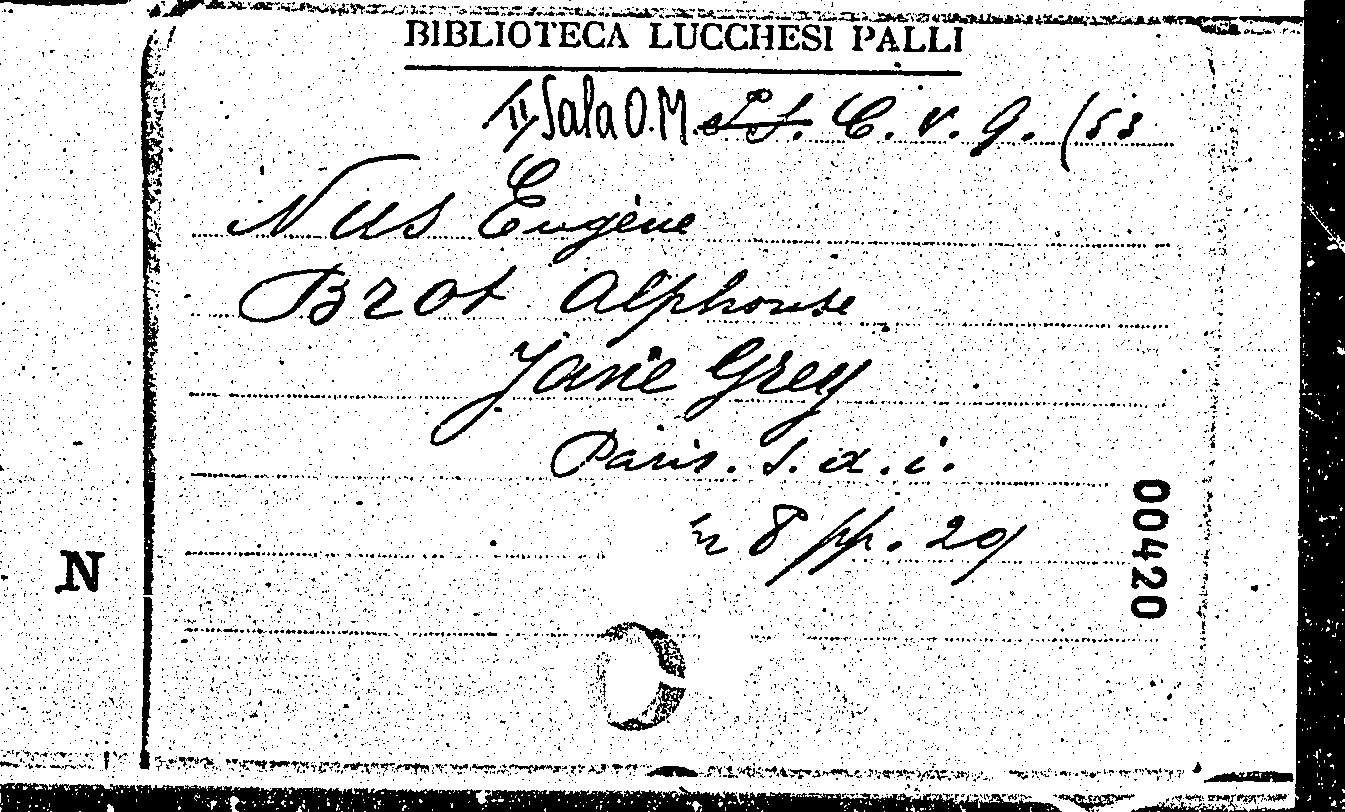 BIBLIOTECA LUCCHESI PALLI
II Sala O.M. C. V. G. (53
Nus Eugène
Brot Alphonse
Jane Grey
Paris. s. a. i.
in 8 pp. 29
00420
N